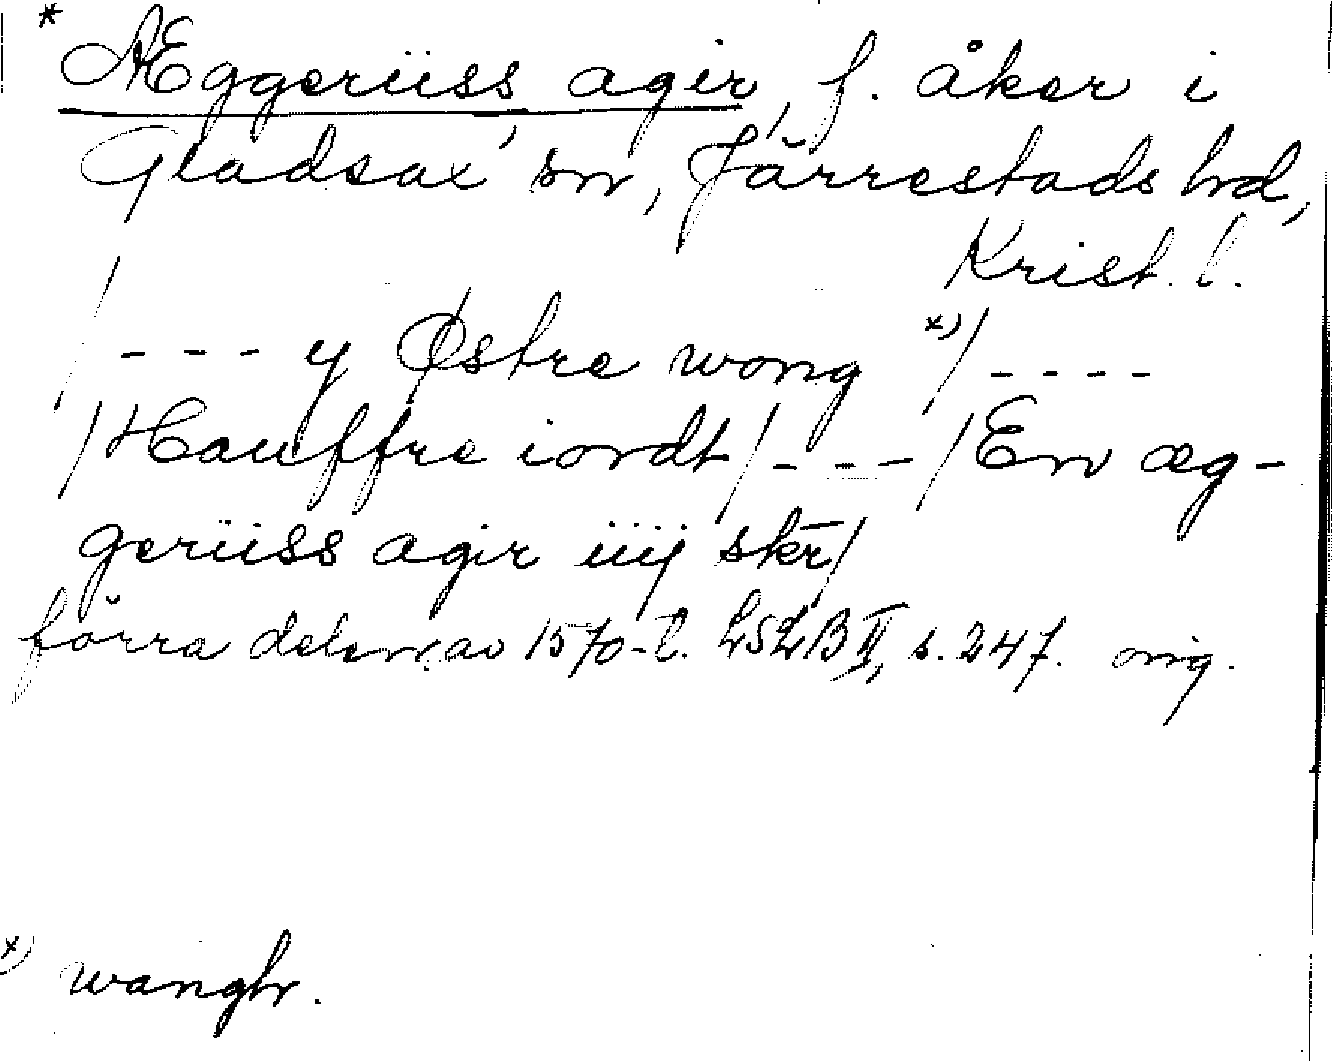 * Æggeriiss agir, f. åker i
Gladsax' sn, Järrestads hd,
Krist. l.
/ - - - y Østre wong x) / - - - -
/Hauffre iordt/ - - - /En æg-
geriiss agir iiij skr̄/
förra delen av 1570-t. LSLB II, s. 247. orig.
x) wangh.